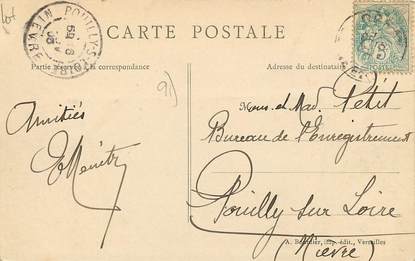 lot
POUILLY-S-LOIRE
NIEVRE
CARTE POSTALE
Partie réservée à la correspondance
Adresse du destinataire
91
Amitiés
Mons. et Mad. Petit
Bureau de l'Enregistrement
Pouilly sur Loire
(Nièvre)
A. Bourdier, imp. édit., Versailles